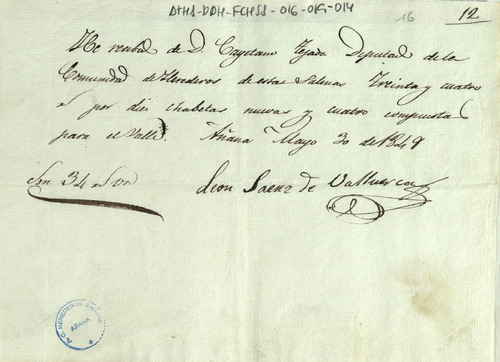 ATHA-DDH-FCHSS-016-019-014
16
12
He recibido de D. Cayetano Tejada Diputado de la
Comunidad de Herederos de estas Salinas Treinta y cuatro
por diez chabetas nuevas y cuatro compuestas
para el Valle. Añana Mayo 30 de 1849
Son 34
Leon Saenz de Valluerca
HEREDEROS
AÑANA